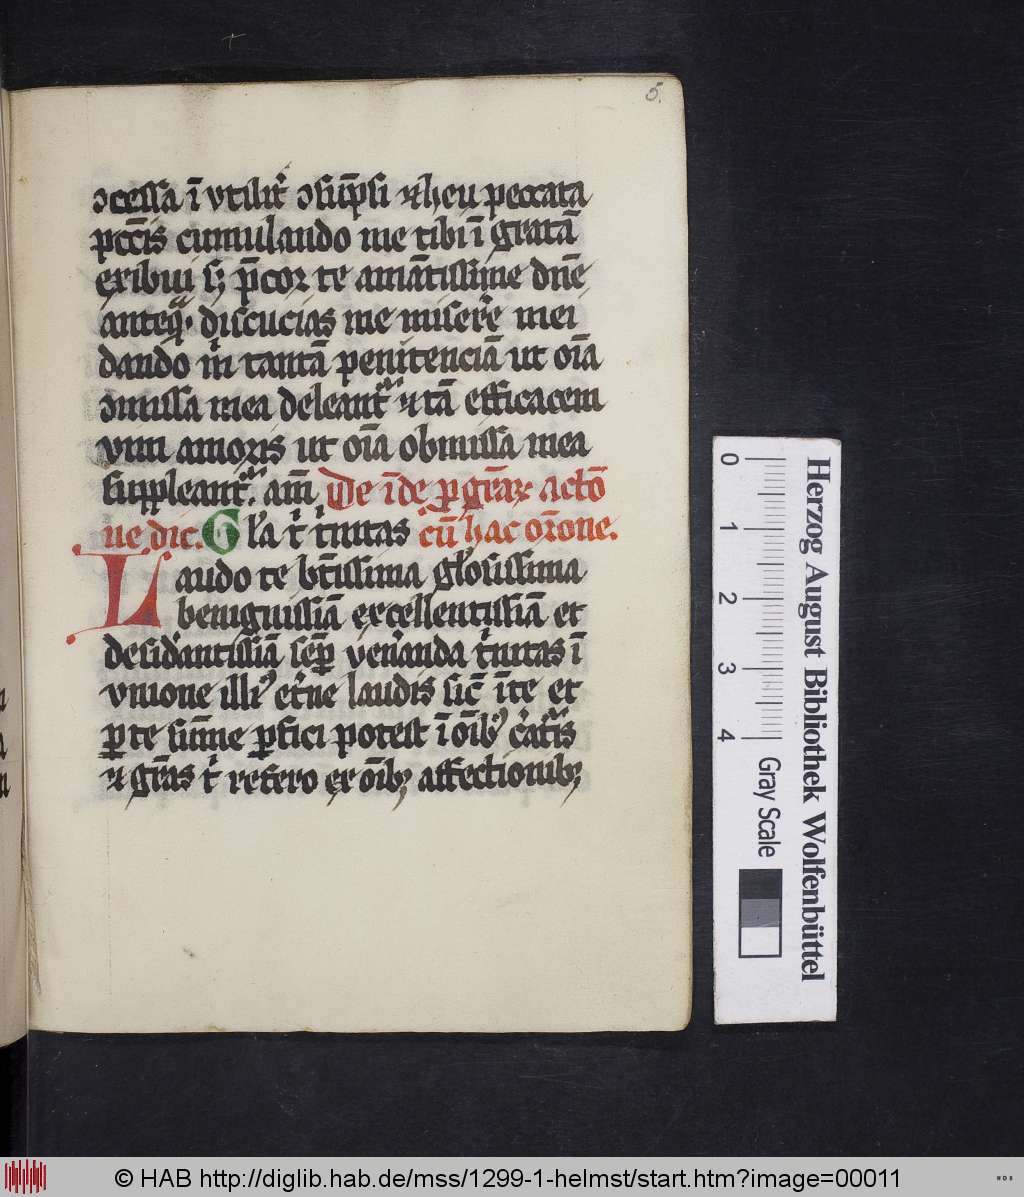 5.
ↄcessa ī vtilit᷑ ↄsūpsi ⁊ heu peccata
pccīs cumulando me tibi ī gratā
exibui sꝫ p̄cor te amātissime dn̄e
anteqᷓ discucias me miserᷓe mei
dando m̄ tantā penitenciā ut oīa
ↄmissa mea deleantᷣ ⁊ tā efficacem
vim amoris ut oīa obmissa mea
suppleantᷣ. am̄. De īde ꝑ gr̄ar actō
ne dic. Gl'a t' t'nitas cū hac or̄one.
Laudo te bt̄issima gl'osissima
benignissīa excellentissīa et
desid'antissīā sēꝑ ven'anda t'nitas ī
vnione illi9 et'ne laudis sic̄ īte et
ꝑ te sūme ꝑfici potest ī oīb9 c'atᷓis
⁊ gr̄as t' refero ex oībꝫ affectionibꝫ
0 1 2 3 4
Gray Scale
Herzog August Bibliothek Wolfenbüttel
© HAB http://diglib.hab.de/mss/1299-1-helmst/start.htm?image=00011